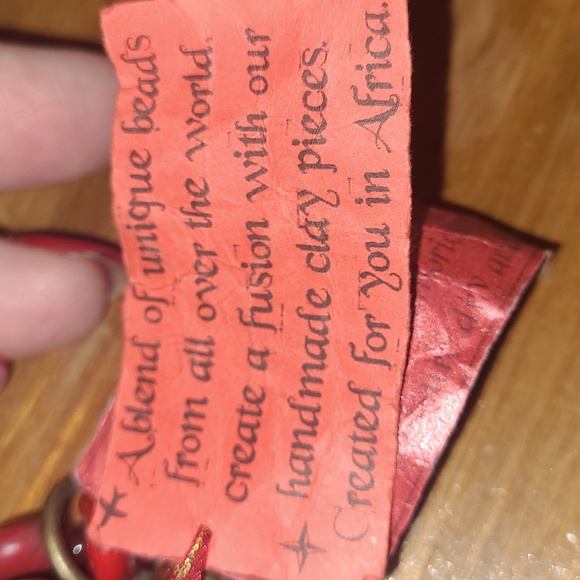 A blend of unique beads
from all over the world,
create a fusion with our
handmade clay pieces.
Created for you in Africa.